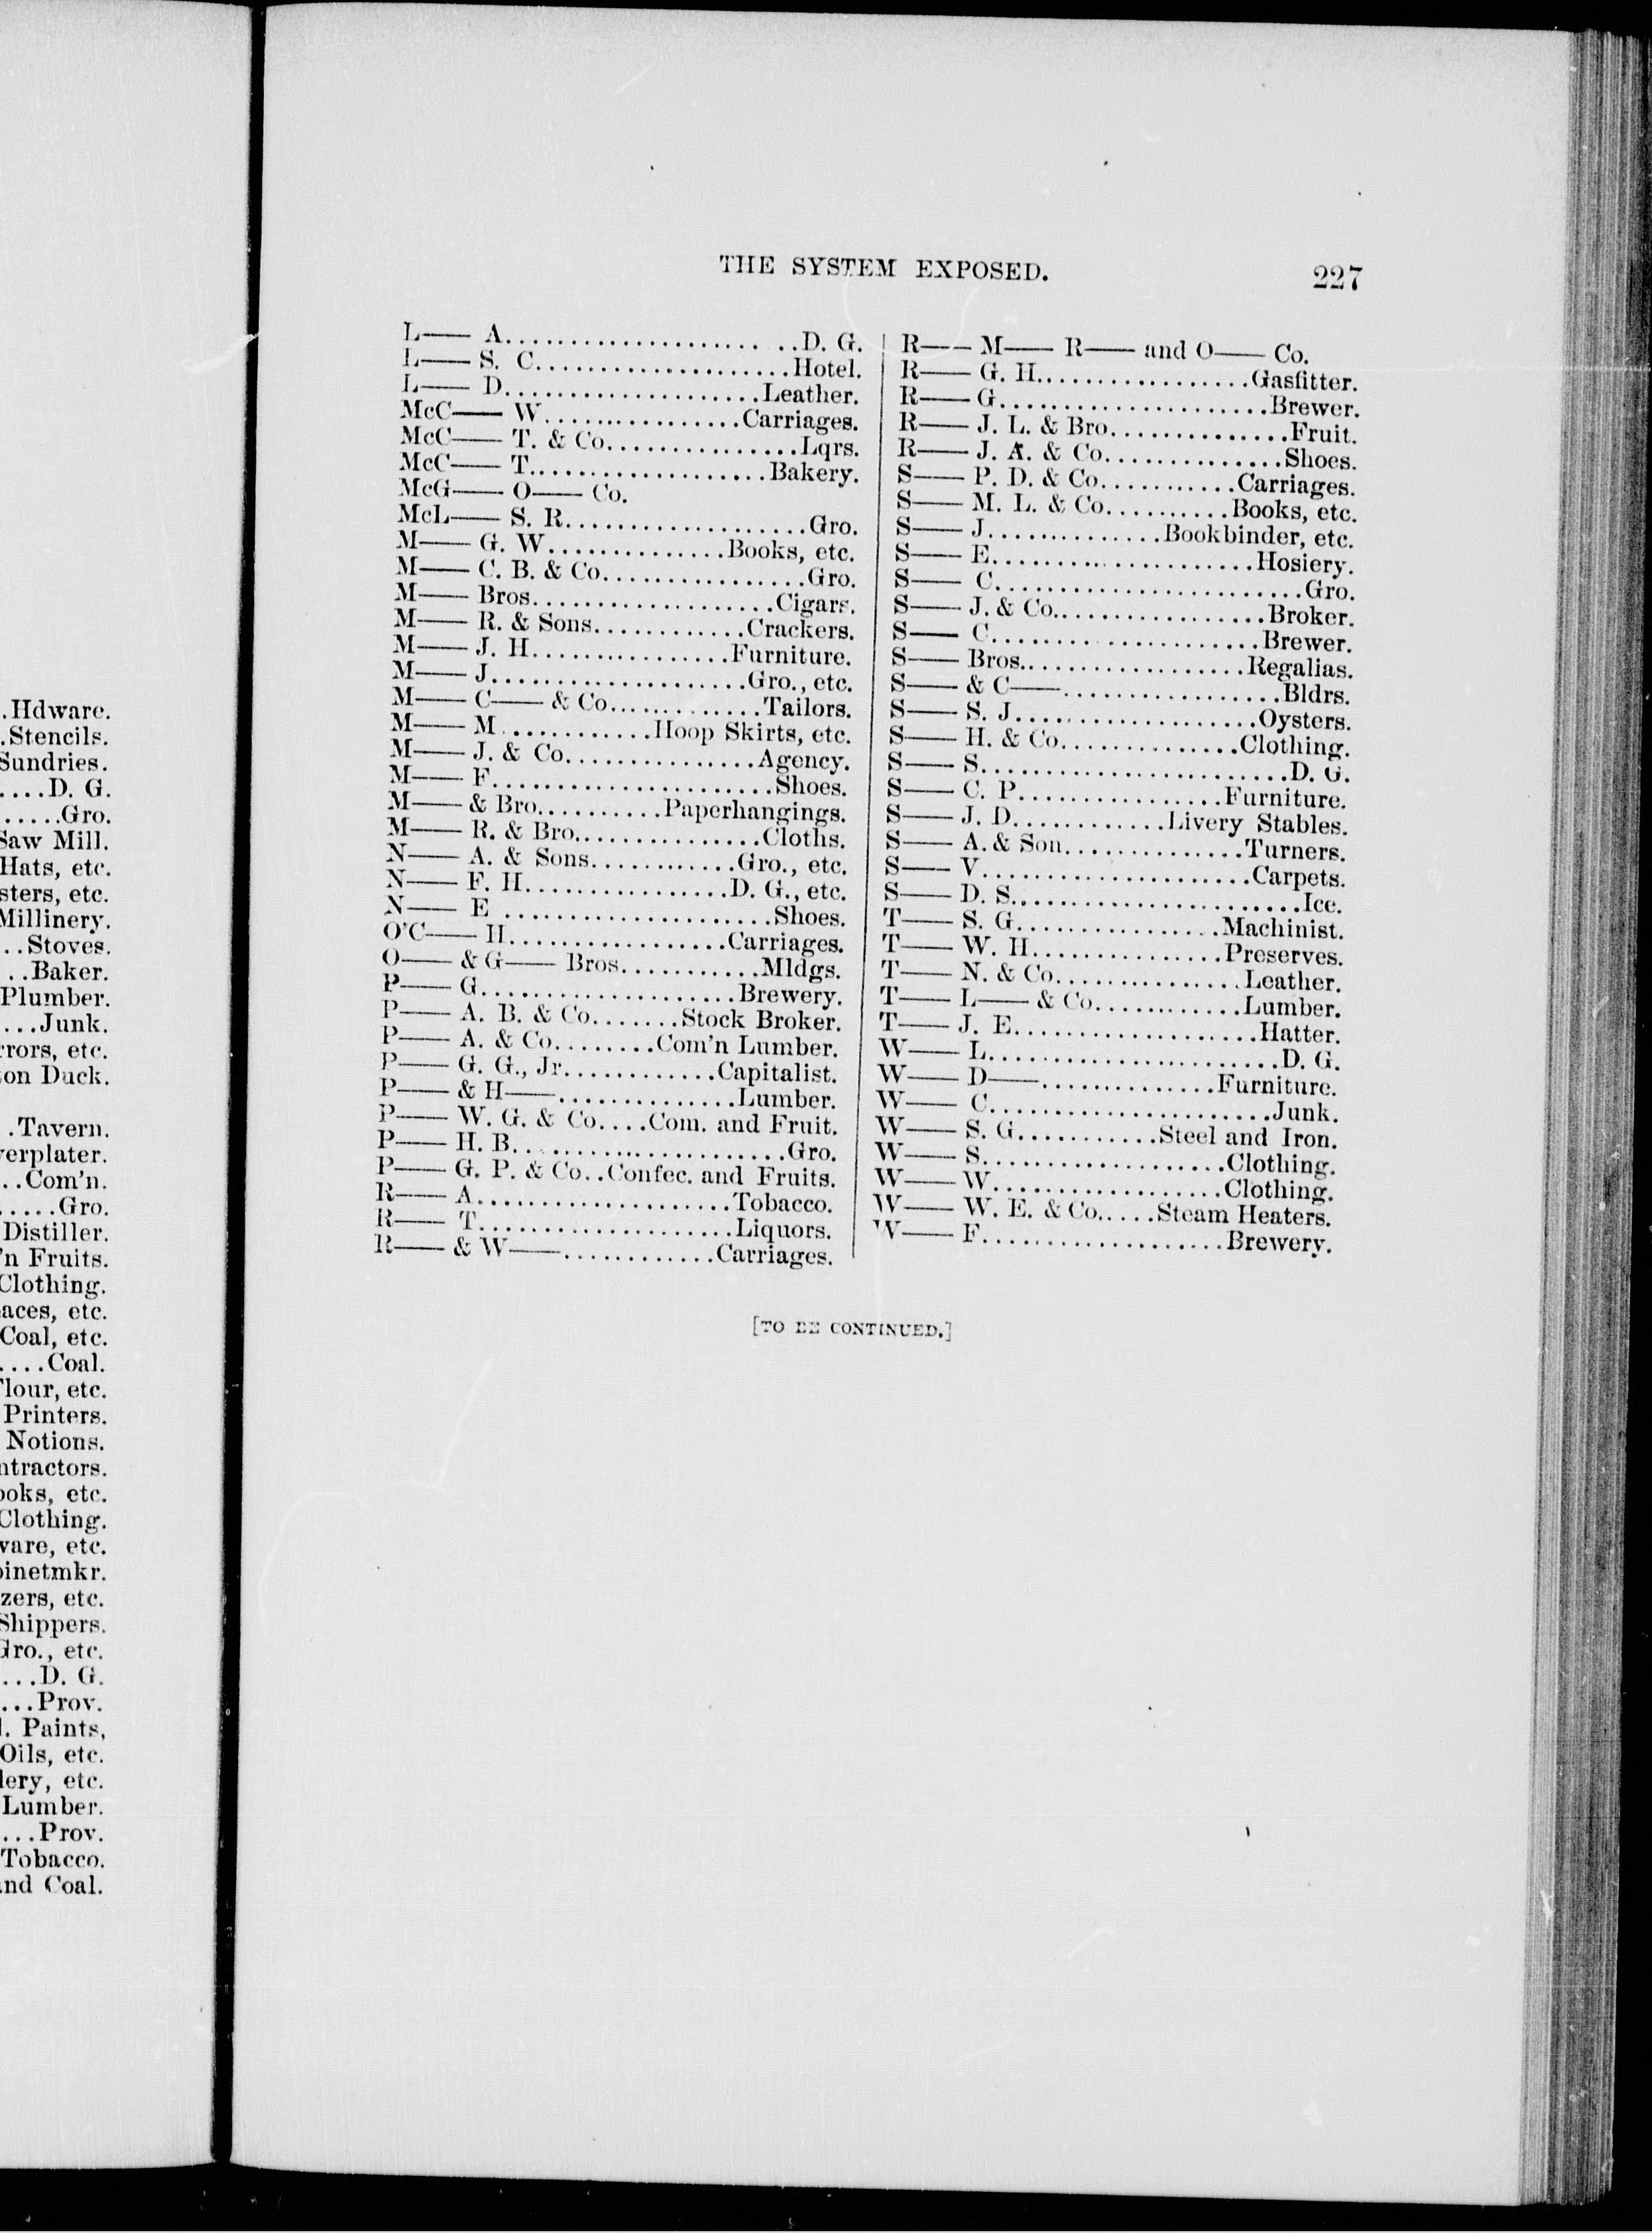 .Hdware.
.Stencils.
Sundries.
....D. G.
......Gro.
Saw Mill.
Hats, etc.
sters, etc.
Millinery.
...Stoves.
..Baker.
Plumber.
....Junk.
rrors, etc.
on Duck.
.Tavern.
verplater.
..Com'n.
.....Gro.
Distiller.
'n Fruits.
Clothing.
aces, etc.
Coal, etc.
....Coal.
Flour, etc.
Printers.
Notions.
ntractors.
ooks, etc.
Clothing.
ware, etc.
binetmkr.
zers, etc.
Shippers.
Gro., etc.
...D. G.
...Prov.
l. Paints,
Oils, etc.
lery, etc.
Lumber.
...Prov.
Tobacco.
and Coal.
THE SYSTEM EXPOSED. 227
L—— A........................D. G.
L—— S. C.....................Hotel.
L—— D.....................Leather.
McC—— W................Carriages.
McC—— T. & Co................Lqrs.
McC—— T...................Bakery.
McG—— O—— Co.
McL—— S. R....................Gro.
M—— G. W...............Books, etc.
M—— C. B. & Co.................Gro.
M—— Bros....................Cigars.
M—— R. & Sons.............Crackers.
M—— J. H.................Furniture.
M—— J.....................Gro., etc.
M—— C—— & Co.............Tailors.
M—— M............Hoop Skirts, etc.
M—— J. & Co................Agency.
M—— F........................Shoes.
M—— & Bro...........Paperhangings.
M—— R. & Bro................Cloths.
N—— A. & Sons............Gro., etc.
N—— F. H.................D. G., etc.
N—— E .......................Shoes.
O'C—— H..................Carriages.
O—— & G—— Bros............Mldgs.
P—— G.....................Brewery.
P—— A. B. & Co.......Stock Broker.
P—— A. & Co.........Com'n Lumber.
P—— G. G., Jr.............Capitalist.
P—— & H——...............Lumber.
P—— W. G. & Co....Com. and Fruit.
P—— H. B.......................Gro.
P—— G. P. & Co..Confec. and Fruits.
R—— A.....................Tobacco.
R—— T.....................Liquors.
R—— & W——.............Carriages.
R—— M—— R—— and O—— Co.
R—— G. H..................Gasfitter.
R—— G.......................Brewer.
R—— J. L. & Bro...............Fruit.
R—— J. A. & Co...............Shoes.
S—— P. D. & Co...........Carriages.
S—— M. L. & Co..........Books, etc.
S—— J...............Bookbinder, etc.
S—— E......................Hosiery.
S—— C..........................Gro.
S—— J. & Co..................Broker.
S—— C.......................Brewer.
S—— Bros...................Regalias.
S—— & C——...................Bldrs.
S—— S. J.....................Oysters.
S—— H. & Co...............Clothing.
S—— S..........................D. G.
S—— C. P.................Furniture.
S—— J. D.............Livery Stables.
S—— A. & Son...............Turners.
S—— V.......................Carpets.
S—— D. S.........................Ice.
T—— S. G.................Machinist.
T—— W. H................Preserves.
T—— N. & Co................Leather.
T—— L—— & Co............Lumber.
T—— J. E.....................Hatter.
W—— L.........................D. G.
W—— D——...............Furniture.
W—— C........................Junk.
W—— S. G............Steel and Iron.
W—— S.....................Clothing.
W—— W....................Clothing.
W—— W. E. & Co.....Steam Heaters.
W—— F.....................Brewery.
[TO BE CONTINUED.]